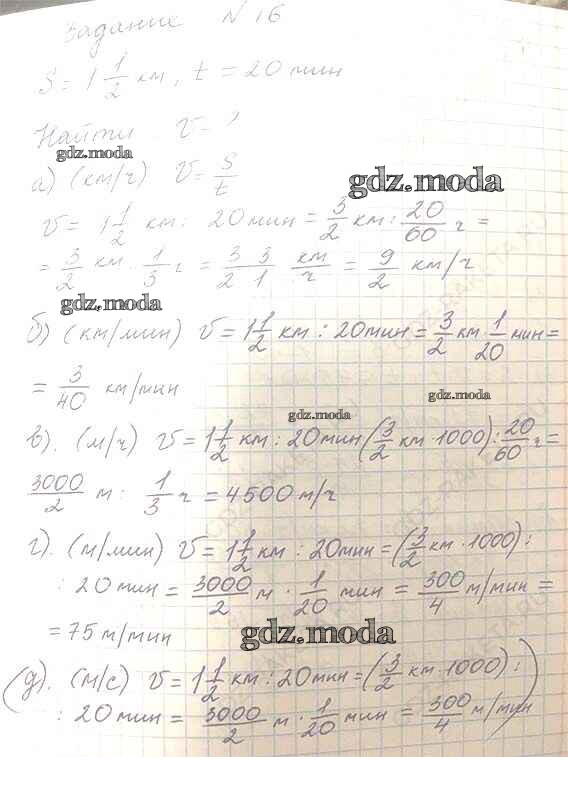 Задание №16
S = 1 1/2 км, t = 20 мин
Найти v = ?
gdz.moda
а) (км/ч) v = S/t
gdz.moda
v = 1 1/2 км : 20 мин = 3/2 км : 20/60 ч =
= 3/2 км : 1/3 ч = 3/2 · 3/1 км/ч = 9/2 км/ч
gdz.moda
б) (км/мин) v = 1 1/2 км : 20 мин = 3/2 км · 1/20 мин =
= 3/40 км/мин
gdz.moda
gdz.moda
в). (м/ч) v = 1 1/2 км : 20 мин (3/2 км · 1000) : 20/60 ч =
3000/2 м : 1/3 ч = 4500 м/ч
г). (м/мин) v = 1 1/2 км : 20 мин = (3/2 км · 1000) :
: 20 мин = 3000/2 м · 1/20 мин = 300/4 м/мин =
= 75 м/мин
gdz.moda
(д). (м/с) v = 1 1/2 км : 20 мин = (3/2 км · 1000) :
: 20 мин = 3000/2 м · 1/20 мин = 300/4 м/мин)